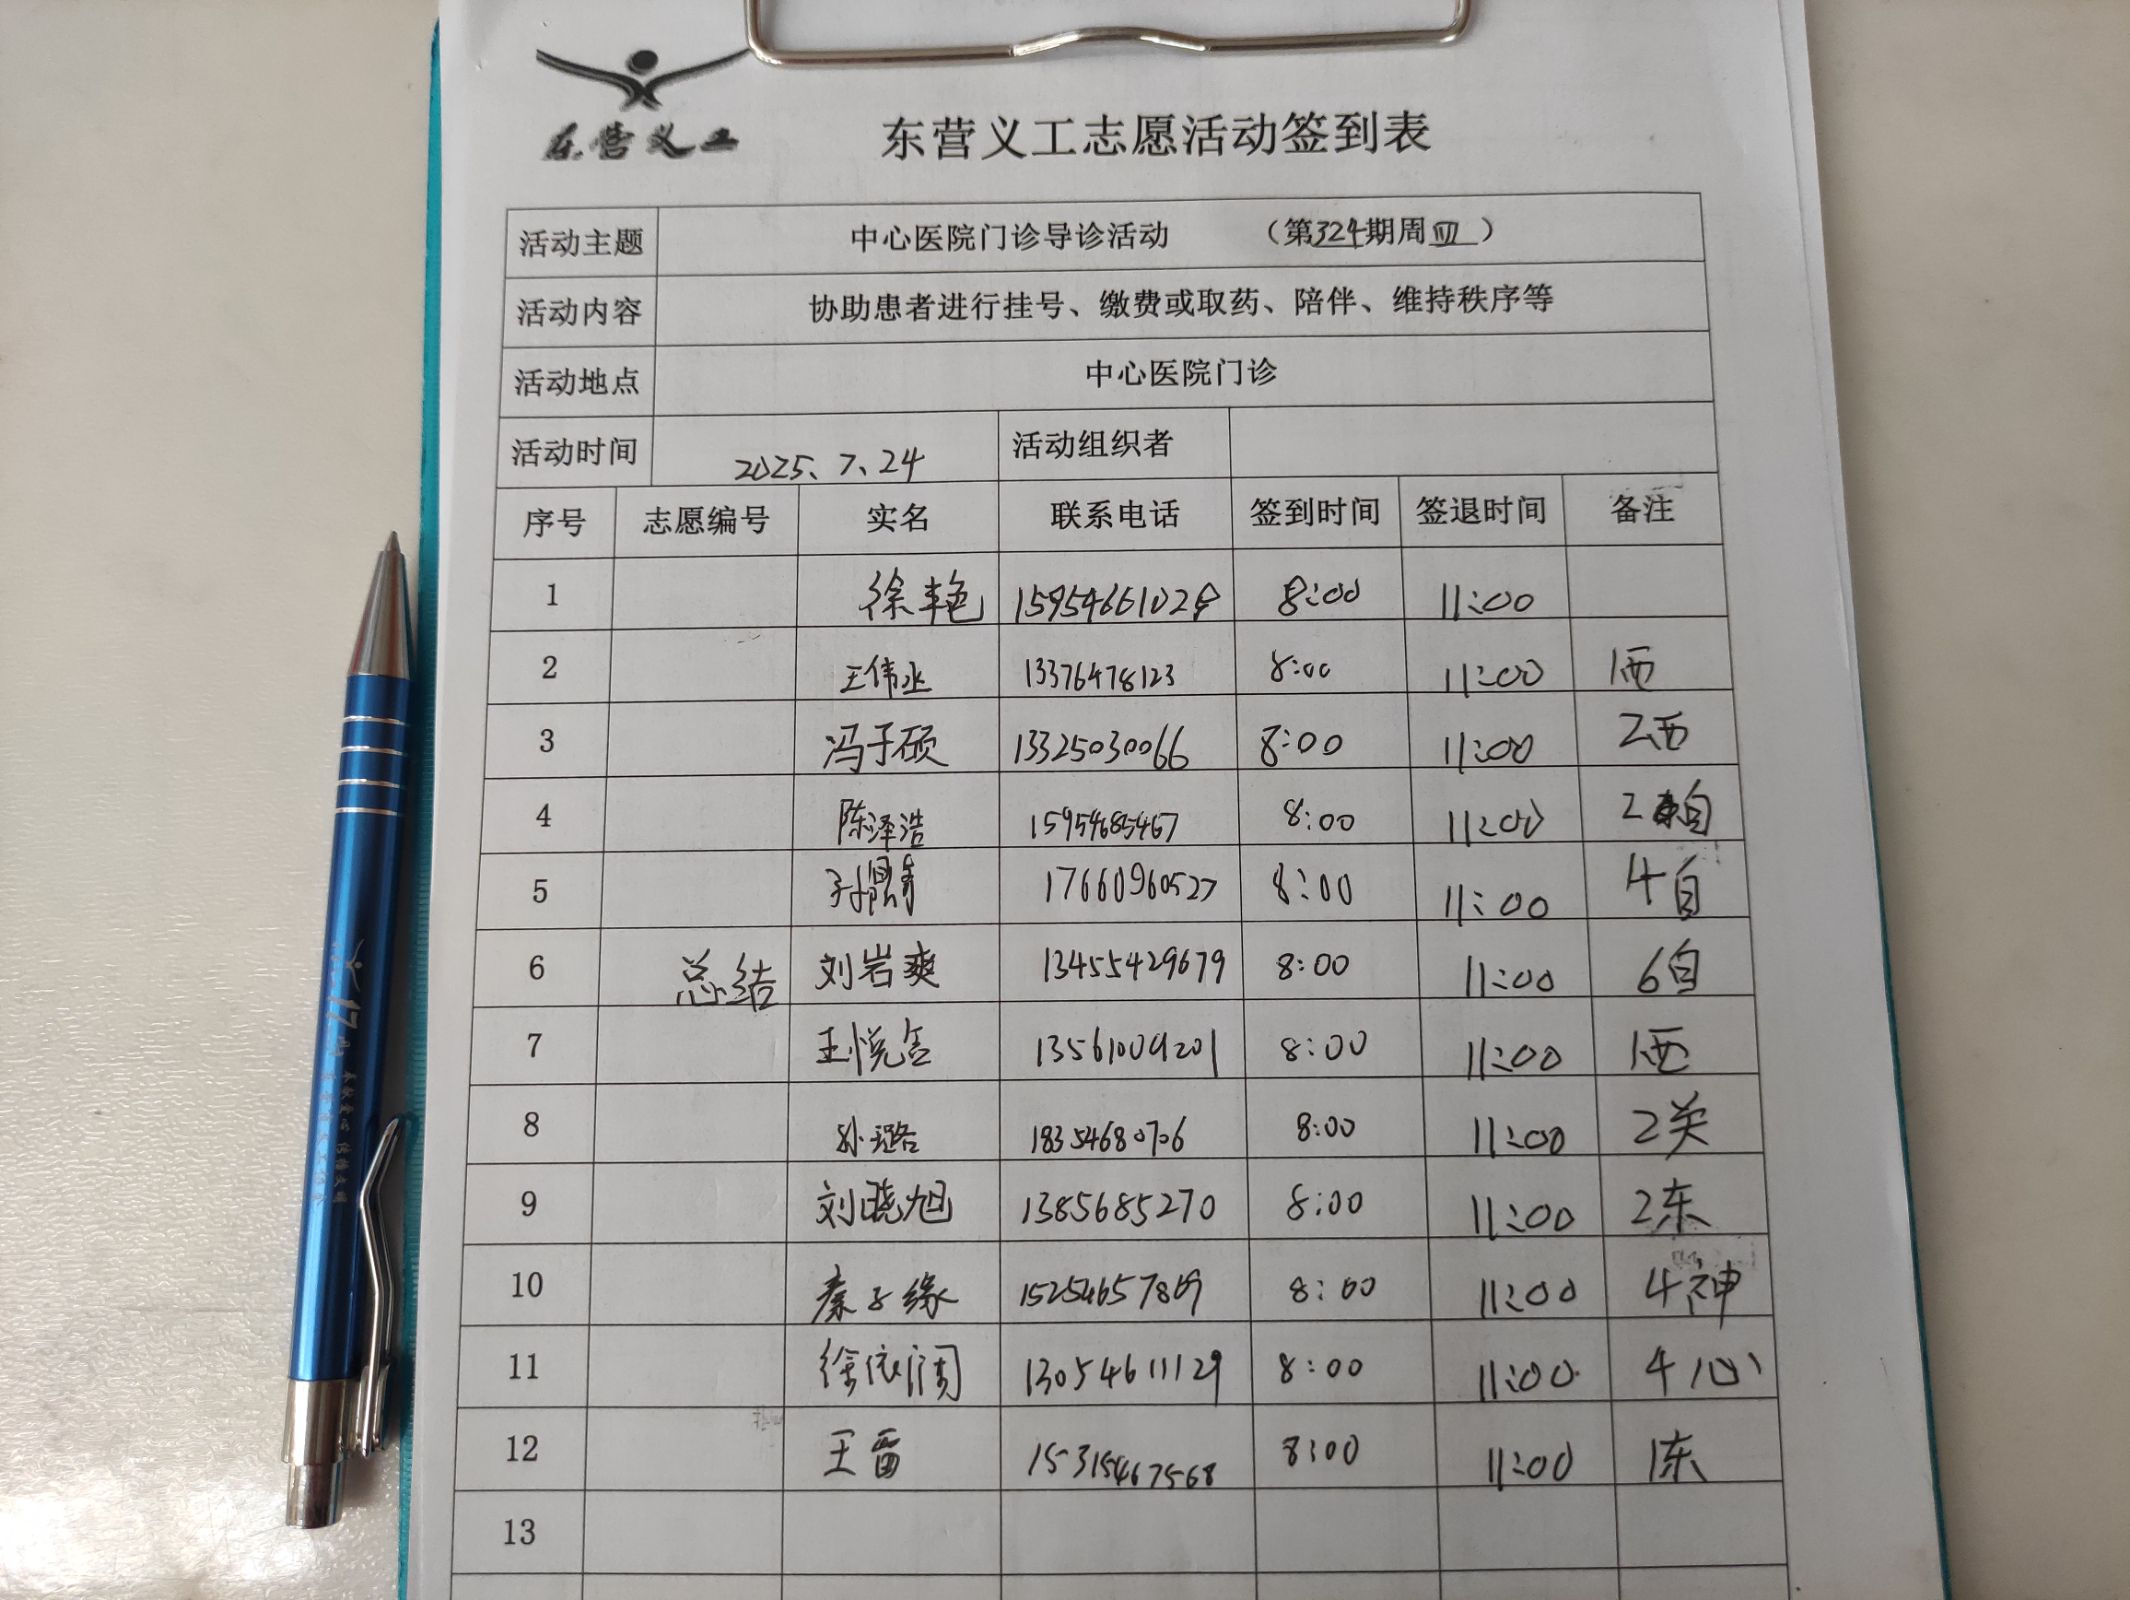 东营义工
东营义工志愿活动签到表
活动主题 中心医院门诊导诊活动 （第324期周四）
活动内容 协助患者进行挂号、缴费或取药、陪伴、维持秩序等
活动地点 中心医院门诊
活动时间 2025、7、24 活动组织者
序号 志愿编号 实名 联系电话 签到时间 签退时间 备注
1 徐艳 8:00 11:00
2 王伟丞 13376478123 8:00 11:00 1西
3 冯子硕 13325030066 8:00 11:00 2西
4 陈泽浩 15954685467 8:00 11:00 2自
5 17660960527 8:00 11:00 4自
6 总结 刘岩爽 13455429679 8:00 11:00 6自
7 王悦 13561009201 8:00 11:00 1西
8 孙璐 18354680706 8:00 11:00 2关
9 刘晓旭 1385685270 8:00 11:00 2东
10 秦子缘 8:00 11:00 4神
11 徐依润 13054611129 8:00 11:00 4心
12 王雷 15315467568 8:00 11:00 1东
13
17